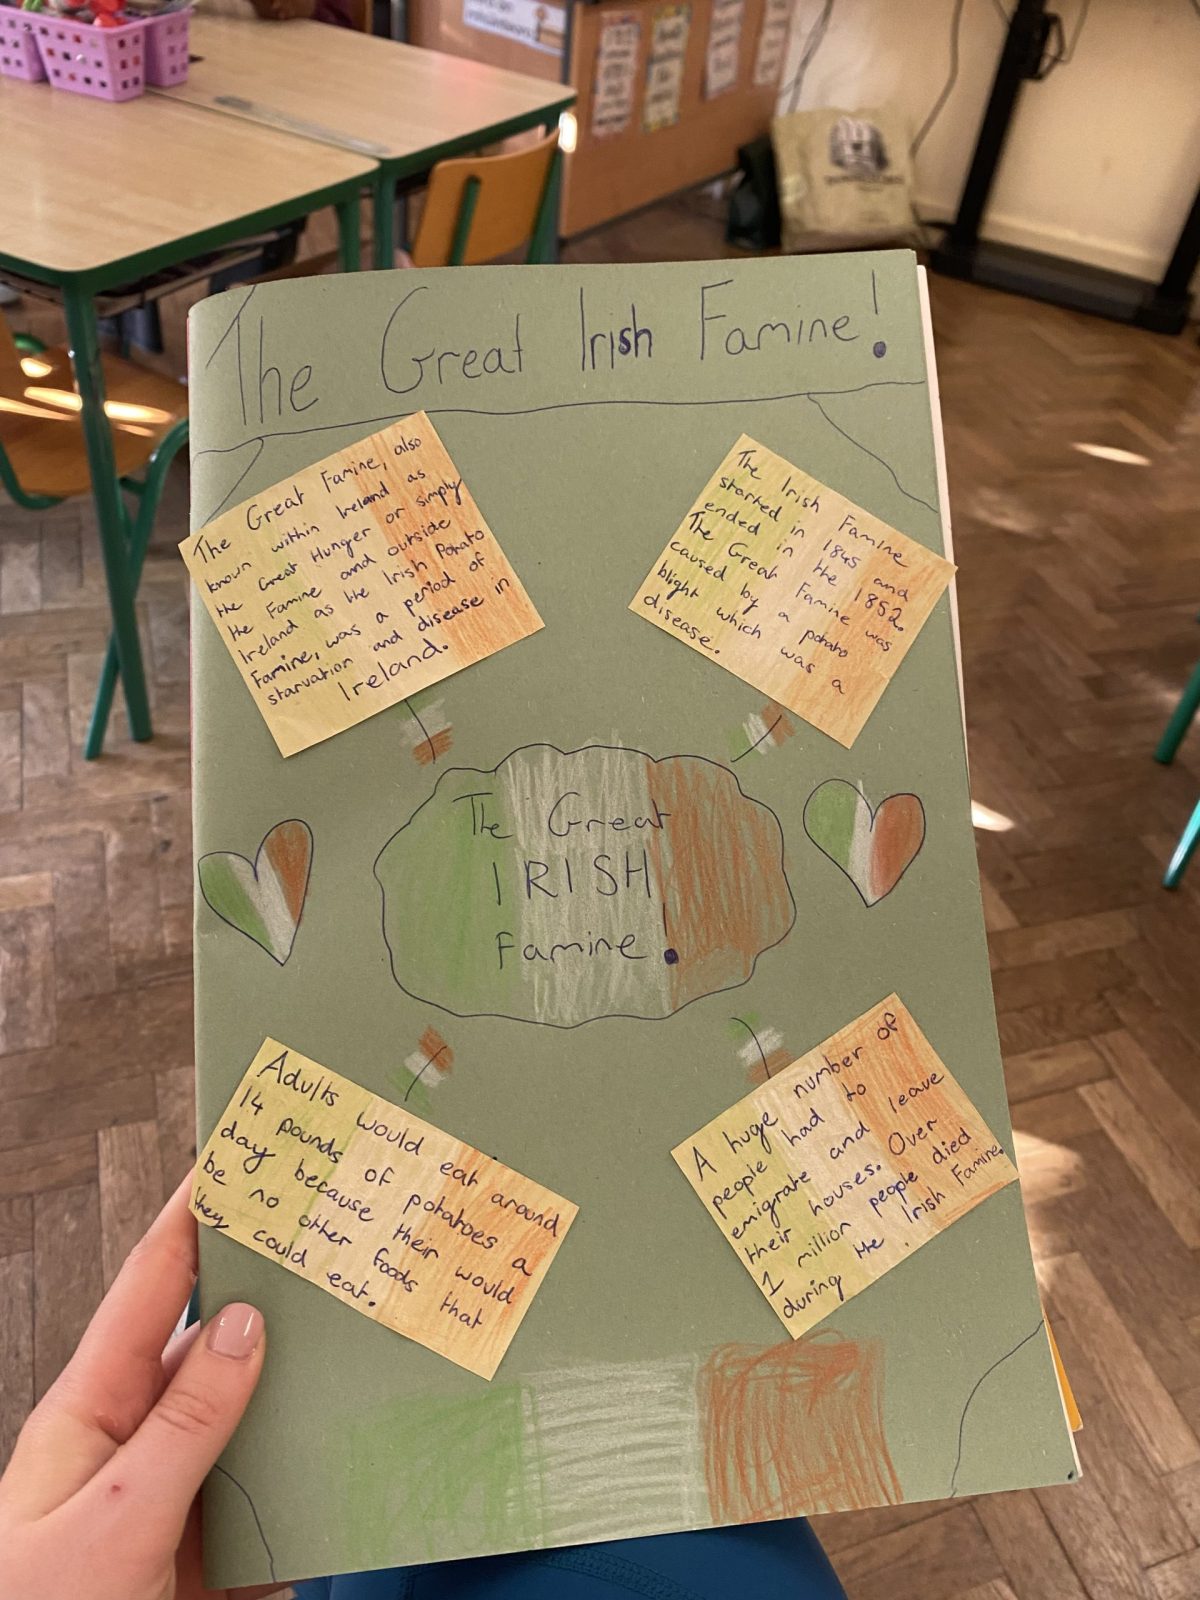 The Great Irish Famine!
The Great Famine, also
known within Ireland as
the Great Hunger or simply
the Famine and outside
Ireland as the Irish Potato
Famine, was a period of
starvation and disease in
Ireland.
The Irish Famine
started in 1845 and
ended in the 1852.
The Great Famine was
caused by a potato
blight which was a
disease.
The Great
IRISH
Famine!
Adults would eat around
14 pounds of potatoes a
day because their would
be no other foods that
they could eat.
A huge number of
people had to
emigrate and leave
their houses. Over
1 million people died
during the Irish Famine.